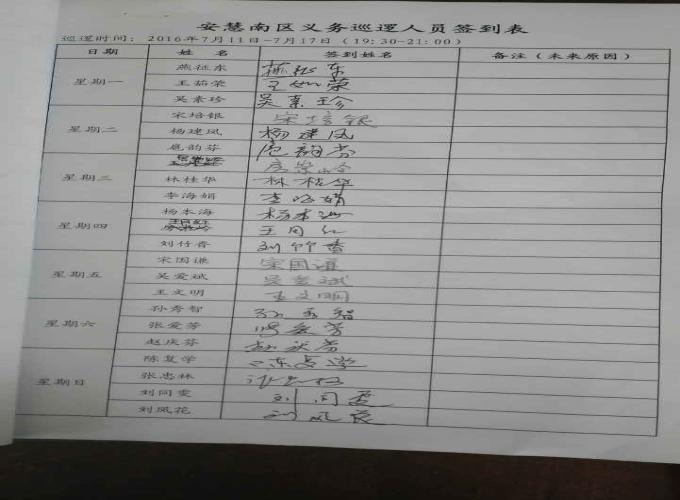 安慧南区义务巡逻人员签到表
巡逻时间：2016年7月11日-7月17日（19:30-21:00）
日期 姓名 签到姓名 备注（未来原因）
星期一
燕征东 燕征东
王茹荣 王如荣
吴素珍 吴素珍
星期二
宋培银 宋培银
杨建凤 杨建凤
扈韵芬 扈韵芬
星期三
林桂华 林桂华
李海娟 李海娟
星期四
杨本海 杨本海
王同红
刘竹香 刘竹香
星期五
宋国谦 宋国谦
吴爱斌 吴爱斌
王文明 王文明
星期六
孙秀智 孙秀智
张爱芳 张爱芳
赵庆芬 赵庆芬
星期日
陈复学 陈复学
张忠林
刘同雯
刘凤花 刘凤花